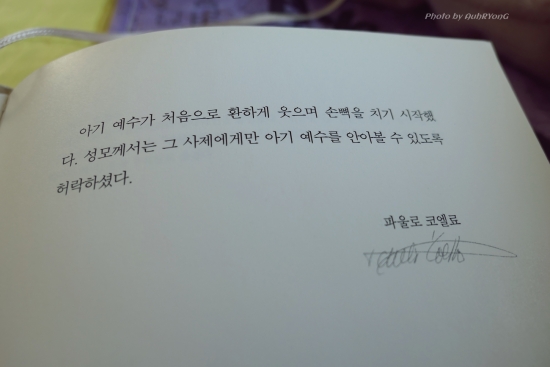 Photo by QubRYonG
아기 예수가 처음으로 환하게 웃으며 손뼉을 치기 시작했
다. 성모께서는 그 사제에게만 아기 예수를 안아볼 수 있도록
허락하셨다.
파울로 코엘료